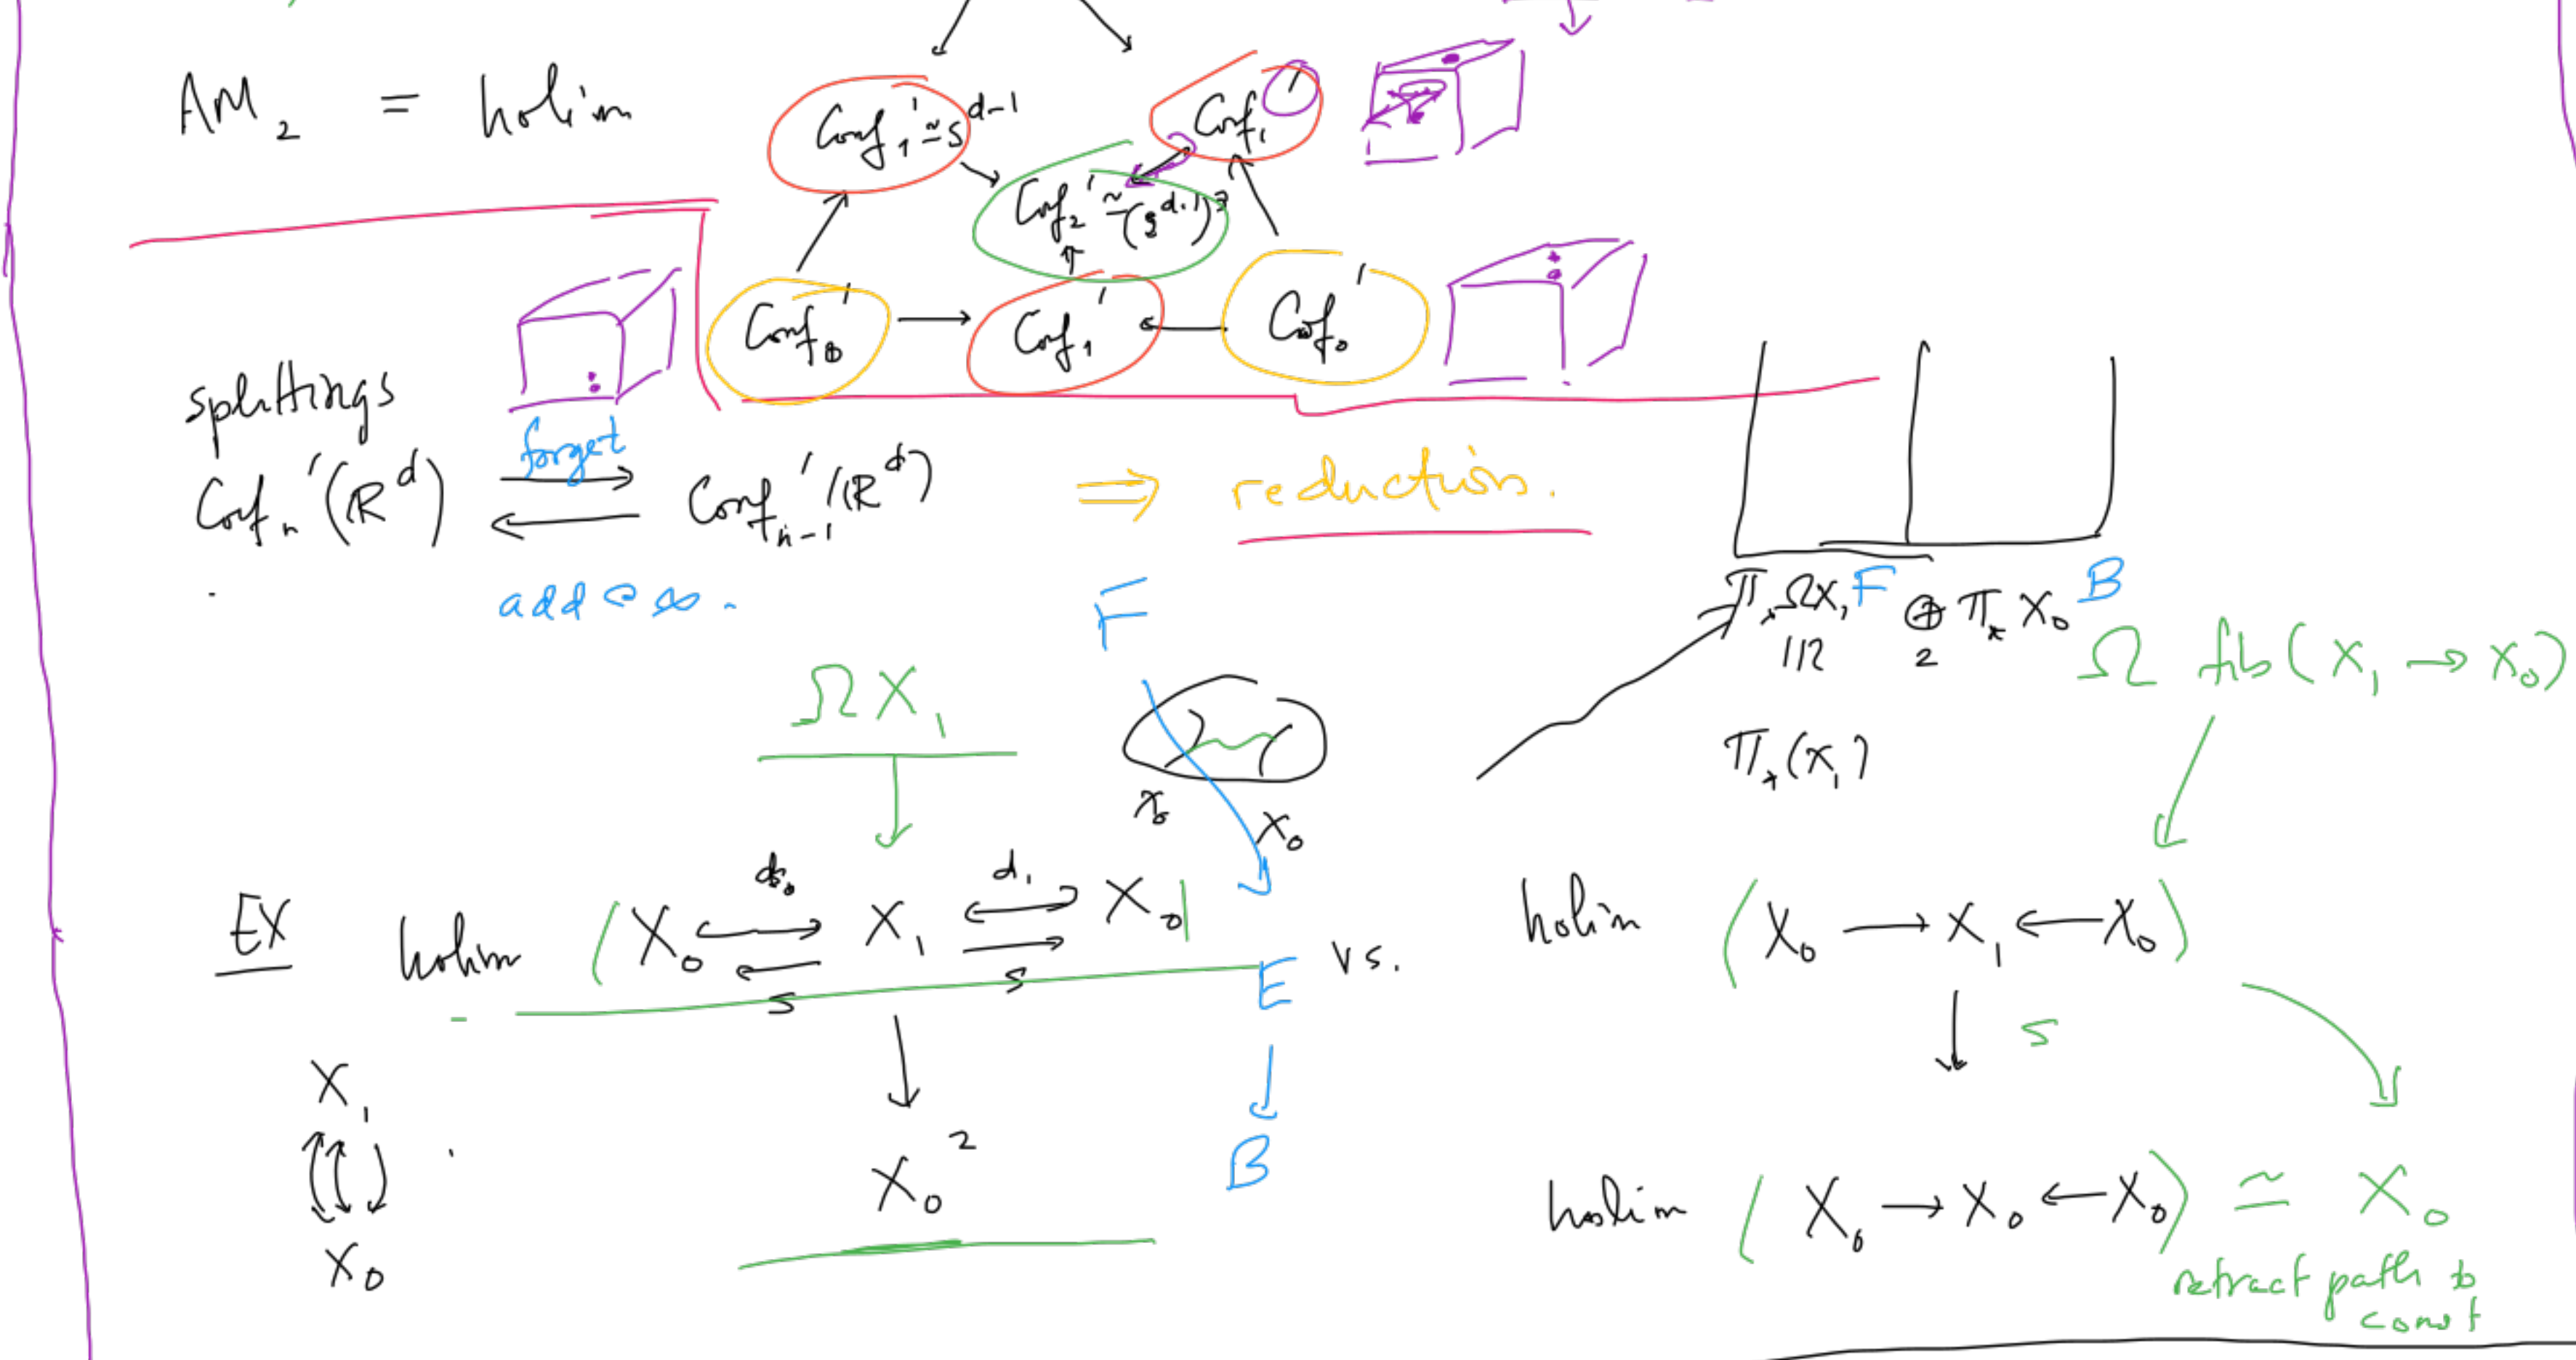 AM₂ = holim
Conf₁' ≃ S^{d-1}
Conf₁'
Conf₂' ≃ (S^{d-1})³
Conf₀' → Conf₁' ← Conf₀'
splittings
forget
Conf_n'(ℝ^d) ⇄ Conf'_{n-1}(ℝ^d) ⇒ reduction.
add @ ∞.
F
π_* ΩX₁ F ⊕ π_* X₀ B
112 2
Ω fib(X₁ → X₀)
ΩX₁
π_*(X₁)
X₀ X₀
d₀ d₁
EX holim (X₀ ⇄ X₁ ⇄ X₀) E vs. holim (X₀ → X₁ ← X₀)
s s
↓ s
X₁
X₀² B
X₀
holim (X₀ → X₀ ← X₀) ≃ X₀
retract path to
const